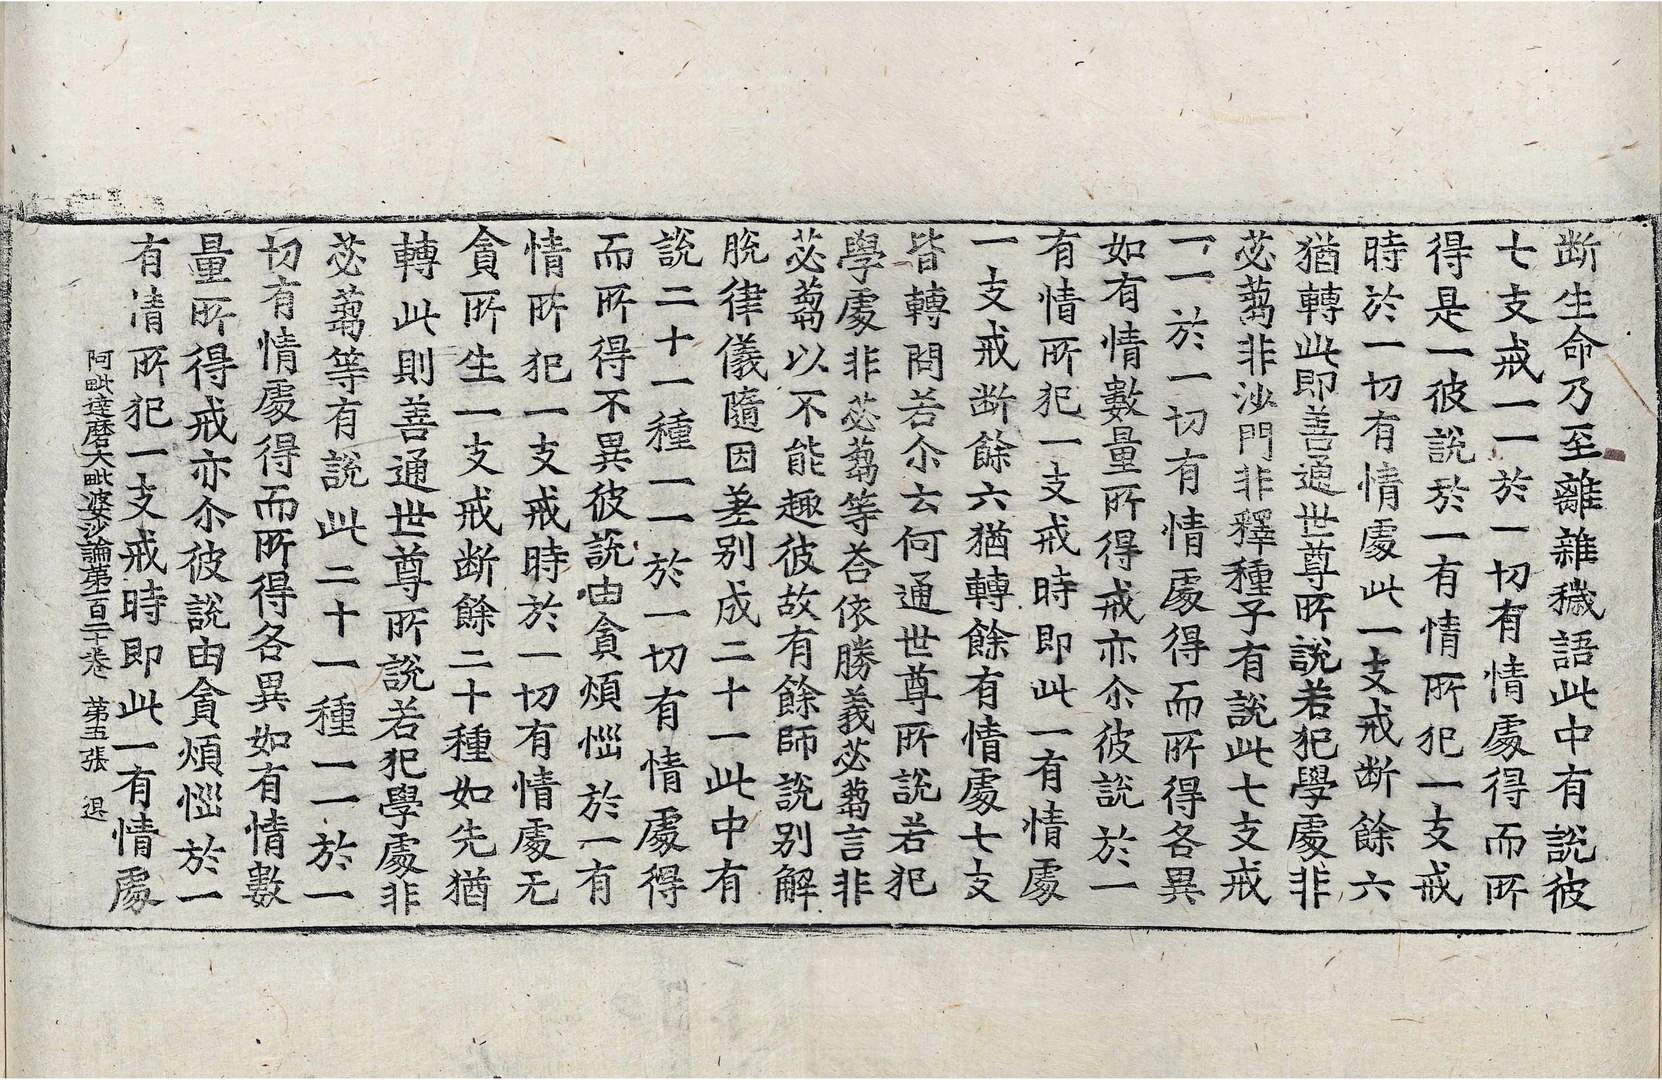 断生命乃至離雜穢語此中有說彼
七支戒一一於一切有情處得而所
得是一彼說於一有情所犯一支戒
時於一切有情處此一支戒断餘六
猶轉此即善通世尊所說若犯學處非
苾蒭非沙門非釋種子有說此七支戒
一一於一切有情處得而所得各異
如有情數量所得戒亦尒彼說於一
有情所犯一支戒時即此一有情處
一支戒断餘六猶轉餘有情處七支
皆轉問若尒云何通世尊所說若犯
學處非苾蒭等荅依勝義苾蒭言非
苾蒭以不能趣彼故有餘師說別解
脫律儀隨因差別成二十一此中有
說二十一種一一於一切有情處得
而所得不異彼說由貪煩惱於一有
情所犯一支戒時於一切有情處无
貪所生一支戒断餘二十種如先猶
轉此則善通世尊所說若犯學處非
苾蒭等有說此二十一種一一於一
切有情處得而所得各異如有情數
量所得戒亦尒彼說由貪煩惱於一
有情所犯一支戒時即此一有情處
阿毗達磨大毗婆沙論第一百二十卷 第五張 退